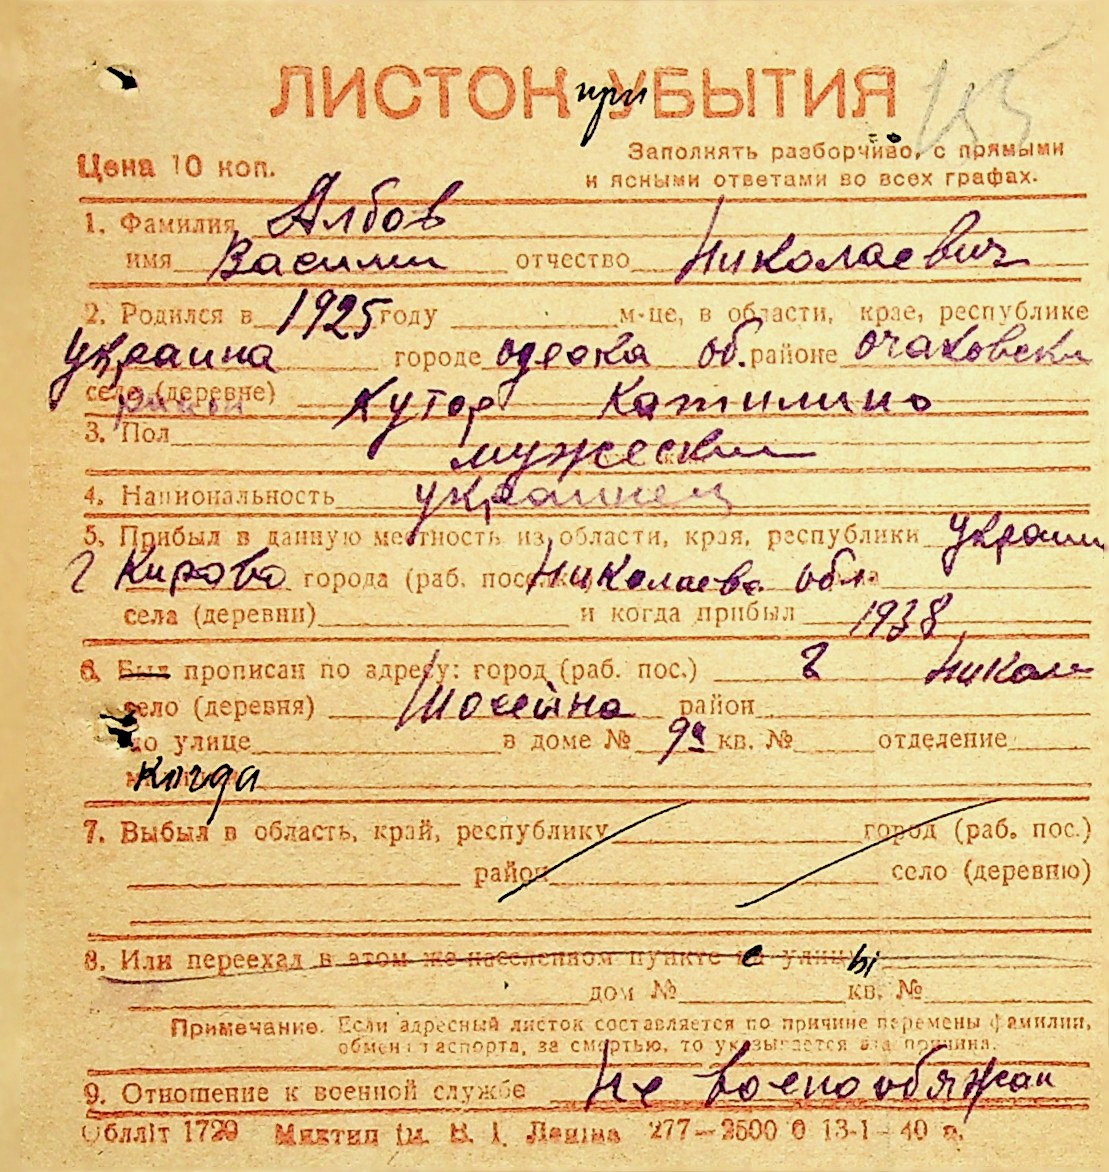 ЛИСТОК при УБЫТИЯ 155
Цена 10 коп.
Заполнять разборчиво, с прямыми
и ясными ответами во всех графах.
1. Фамилия Албов
имя Васили отчество Николаевич
2. Родился в 1925 году м-це, в области, крае, республике
Украина городе одеска об. районе очаковски
село (деревне) район Хутор Катилино
3. Пол мужески
4. Национальность украинец
5. Прибыл в данную местность из области, края, республики Украин
г Кирово города (раб. посёлка) Николаевс обл
села (деревни) и когда прибыл 1938
6. Был прописан по адресу: город (раб. пос.) г Никол
село (деревня) Шохейна район
по улице в доме № 9а кв. № отделение
Когда
7. Выбыл в область, край, республику город (раб. пос.)
район село (деревню)
8. Или переехал в этом же населенном пункте с улицы
дом № кв. №
Примечание. Если адресный листок составляется по причине перемены фамилии,
обмена паспорта, за смертью, то указывается эта причина.
9. Отношение к военной службе Не военообяжан
Обллiт 1729 Миктип iм. В. I. Ленiна 277—2500 0 13-1-40 р.